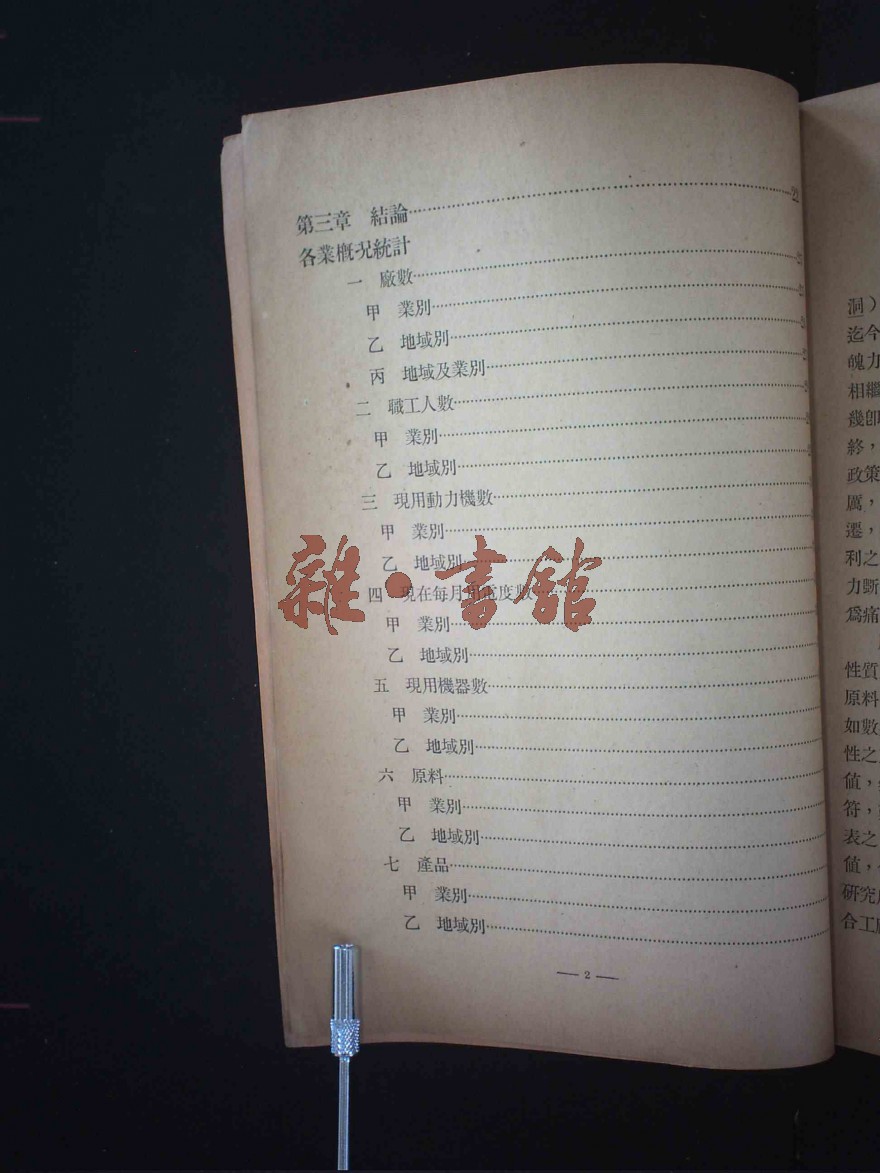 第三章　結論……22
各業概況統計
一　廠數
甲　業別
乙　地域別
丙　地域及業別
二　職工人數
甲　業別
乙　地域別
三　現用動力機數
甲　業別
乙　地域別
四　現在每月用電度數
甲　業別
乙　地域別
五　現用機器數
甲　業別
乙　地域別
六　原料
甲　業別
乙　地域別
七　產品
甲　業別
乙　地域別
— 2 —
雜·書館
洞）
迄今
魄力
相繼
幾卽
終，
政策
厲，
遷，
利之
力斷
爲痛
性質
原料
如數
性之
値，
符，
表之
値，
研究
合工